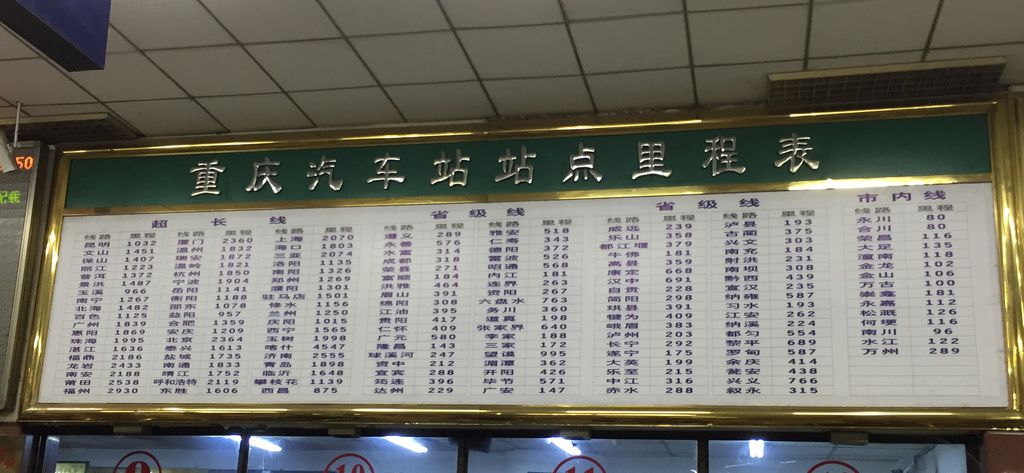 50
记载
重庆汽车站站点里程表
超长线
线路 里程 线路 里程 线路 里程
昆明 1032 厦门 2360 上海 2070
文山 1451 温州 1832 海口 1803
保山 1407 瑞安 1872 三亚 2074
丽江 1223 温岭 1821 洛阳 1135
普洱 1372 杭州 1850 南阳 1326
景洪 1487 宁波 1904 郑州 1269
玉溪 966 岳阳 1141 濮阳 1301
南宁 1267 衡阳 1188 驻马店 1501
北海 1482 邵东 1078 修水 1156
百色 1125 益阳 957 兰州 1250
广州 1839 合肥 1359 庆阳 1015
惠阳 1869 安庆 1209 西宁 1565
珠海 1995 北京 2364 玉树 1998
湛江 1636 泰兴 1613 喀什 4547
福鼎 2186 盐城 1735 济南 2555
龙岩 2433 南通 1833 青岛 1898
南安 2188 靖江 1752 临沂 1648
莆田 2538 呼和浩特 2119 攀枝花 1139
福州 2930 东胜 1606 西昌 875
省级线
线路 里程 线路 里程
遵义 289 雅安 518
永善 576 仁寿 343
水富 314 德阳 372
成都 318 雷波 526
荣县 271 昭通 568
富顺 184 内江 181
洪雅 464 连界 263
眉山 391 资阳 267
绵阳 308 六盘水 763
江油 395 务川 360
贵阳 417 道真 198
仁怀 409 张家界 640
广元 580 李家 188
隆昌 143 三家 172
球溪河 247 望谟 995
资中 212 湄潭 362
宜宾 288 开阳 426
筠连 396 毕节 571
达州 229 广安 147
省级线
线路 里程 线路 里程
威远 239 泸县 193
乐山 358 古蔺 375
都江堰 379 兴文 303
牛佛 181 南充 184
高县 359 射洪 231
康定 668 南坝 308
汉中 691 黔西 439
自贡 228 宜汉 235
简阳 298 纳雍 587
珙县 391 习水 193
犍为 409 江安 262
峨眉 383 纳溪 224
泸州 203 都匀 554
长宁 292 黎平 689
遂宁 175 罗甸 587
大英 199 余庆 414
乐至 215 瓮安 438
中江 316 兴义 766
赤水 288 叙永 315
市内线
线路 里程
永川 80
合川 80
荣昌 116
大足 135
潼南 118
金龙 102
金山 106
万古 100
崇龛 181
永嘉 112
松溉 126
何埂 116
南川 96
水江 122
万州 289
9
10
11